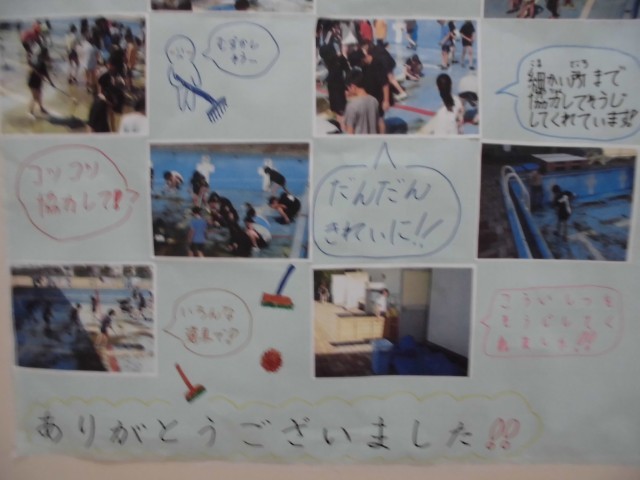 むずかし
そう…
細かい所まで
協力してそうじ
してくれています!!
コツコツ
協力して!!
だんだん
きれいに!!
いろんな
道具で!!
こういしつを
そうじしてく
れました!!
ありがとうございました!!